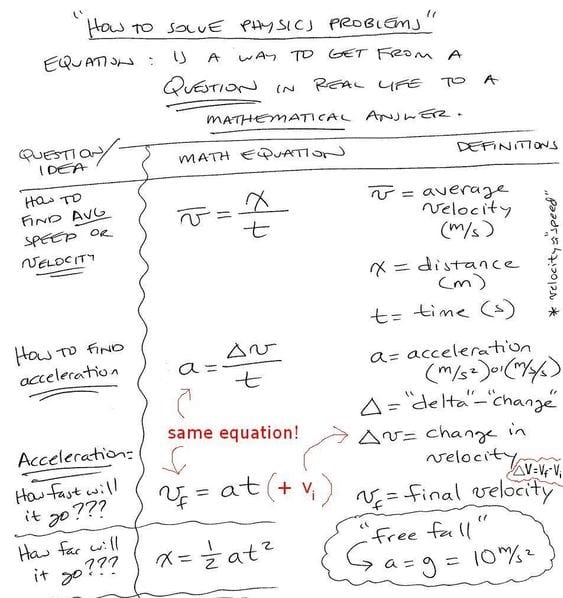 "HOW TO SOLVE PHYSICS PROBLEMS"
EQUATION: IS A WAY TO GET FROM A
QUESTION IN REAL LIFE TO A
MATHEMATICAL ANSWER.
QUESTION/
IDEA
MATH EQUATION
DEFINITIONS
HOW TO
FIND AVG
SPEED OR
VELOCITY
v̅ = x/t
v̅ = average
velocity
(m/s)
x = distance
(m)
t = time (s)
* velocity ≈ "speed"
HOW TO FIND
acceleration
a = Δv/t
a = acceleration
(m/s²) or (m/s/s)
Δ = "delta" - "change"
same equation!
Δv = change in
velocity
ΔV=Vf-Vi
Acceleration:
How fast will
it go???
vf = at (+ vi)
vf = final velocity
How far will
it go???
x = ½ at²
"free fall"
↳ a = g = 10 m/s²